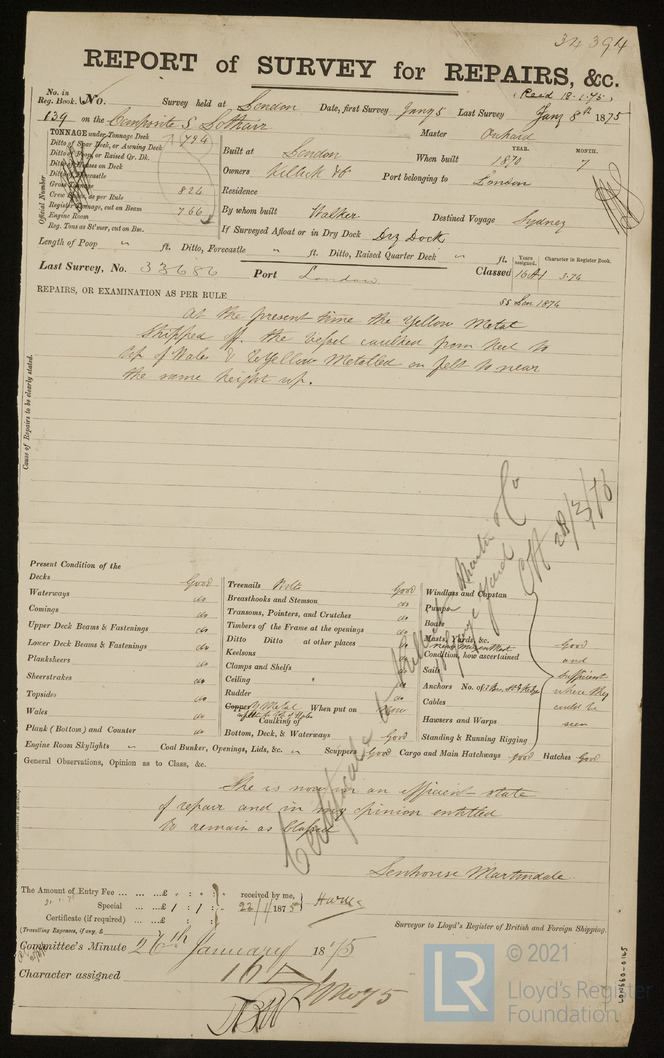 34394
REPORT of SURVEY for REPAIRS, &c.
(Recd 18.1.75)
No. in Reg. Book. No. Survey held at London Date, first Survey Jany 5 Last Survey Jany 8th 1875
139 on the Composite S Lothair Master Orchard
TONNAGE under Tonnage Deck 794
Ditto of Spar Deck, or Awning Deck
Ditto of Poop, or Raised Qr. Dk.
Ditto of Houses on Deck
Ditto of Forecastle
Gross Tonnage 824
Crew as per Rule
Register Tonnage, cut on Beam 766
Engine Room
Reg. Tons as St'mer, cut on Bm.
Official Number
Built at London When built 1870 7
YEAR. MONTH.
Owners Killick & Co Port belonging to London
Residence
By whom built Walker Destined Voyage Sydney
If Surveyed Afloat or in Dry Dock Dry Dock
Length of Poop " ft. Ditto, Forecastle " ft. Ditto, Raised Quarter Deck " ft.
Years assigned. Character in Register Book.
Last Survey, No. 33686 Port London Classed 16 A1 3.74
REPAIRS, OR EXAMINATION AS PER RULE
SS Lon 1874
Cause of Repairs to be clearly stated.
At the present time the Yellow Metal
stripped off. the Vessel caulked from keel to
top of Wales & Yellow Metalled on felt to near
the same height up.
Present Condition of the
Decks Good
Waterways do
Comings do
Upper Deck Beams & Fastenings do
Lower Deck Beams & Fastenings do
Planksheers do
Sheerstrakes do
Topsides do
Wales do
Plank (Bottom) and Counter do
Treenails Bolts Good
Breasthooks and Stemson do
Transoms, Pointers, and Crutches do
Timbers of the Frame at the openings do
Ditto Ditto at other places do
Keelsons do
Clamps and Shelfs do
Ceiling do
Rudder do
Copper Y Metal When put on Now
Caulking of
Bottom, Deck, & Waterways Good
Windlass and Capstan
Pumps
Boats
Masts, Yards, &c.
new Mizen Mast
Condition, how ascertained
Sails
Anchors No. of
Cables
Hawsers and Warps
Standing & Running Rigging
Good
and
Sufficient
where they
could be
seen
Engine Room Skylights " Coal Bunker, Openings, Lids, &c. " Scuppers Good Cargo and Main Hatchways good Hatches Good
General Observations, Opinion as to Class, &c.
She is now in an efficient state
of repair and in my opinion entitled
to remain as Classed
Certificate to
28/3/76
Senhouse Martindale
The Amount of Entry Fee ... ... £ : : received by me,
Special ... ... £ 1 : 1 : 22/1/1875
Certificate (if required) ... £ : :
(Travelling Expenses, if any, £
Surveyor to Lloyd's Register of British and Foreign Shipping.
Committee's Minute 26th January 1875
Character assigned 16 A1
LON660-0145
LR
© 2021
Lloyd's Register
Foundation